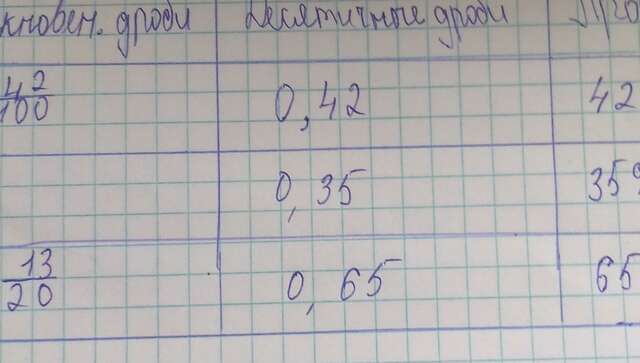 кновен. дроби десятичные дроби
42/100 0,42 42
0,35 35%
13/20 0,65 65